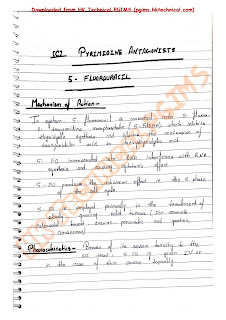 Downloaded from HK Technical PGIMS (pgims.hktechnical.com)
[C] PYRIMIDINE ANTAGONISTS
5 - FLUOROURACIL
Mechanism of Action -
In system 5- fluorouracil is converted into 5- fluoro-
2- deoxyuridine monophosphate which inhibits
thymidylate synthase and blocks the conversion of
deoxyuridilic acid to deoxythymidylic acid
5 - FU incorporated into RNA, interferes with RNA
synthesis and causing cytotoxic effect
5 - FU produce the anticancer effect in the S phase
of the cell cycle
5 - FU is employed primarily in the treatment of
slowly growing solid tumors (for example
colorectal, breast, ovarian, pancreatic and gastric
carcinomas)
Pharmacokinetics - Because of its severe toxicity to the
GIT tract, 5-FU is given IV or
in the case of skin cancer topically